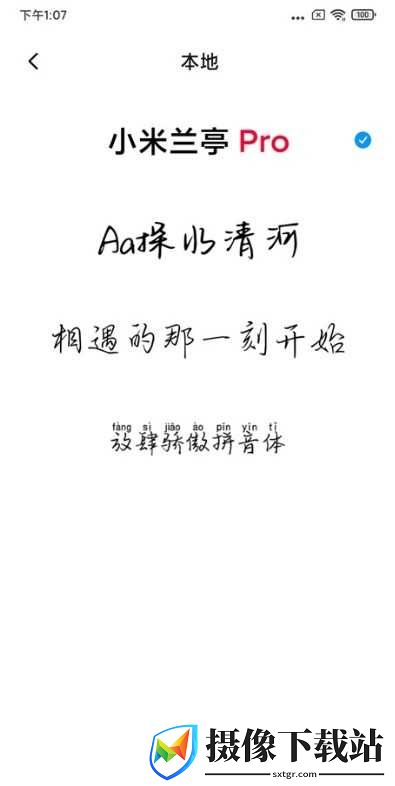 下午1:07
100
本地
小米兰亭 Pro
Aa探水清河
相遇的那一刻开始
fàng sì jiāo ào pīn yīn tǐ
放肆骄傲拼音体
摄像下载站
sxtgr.com